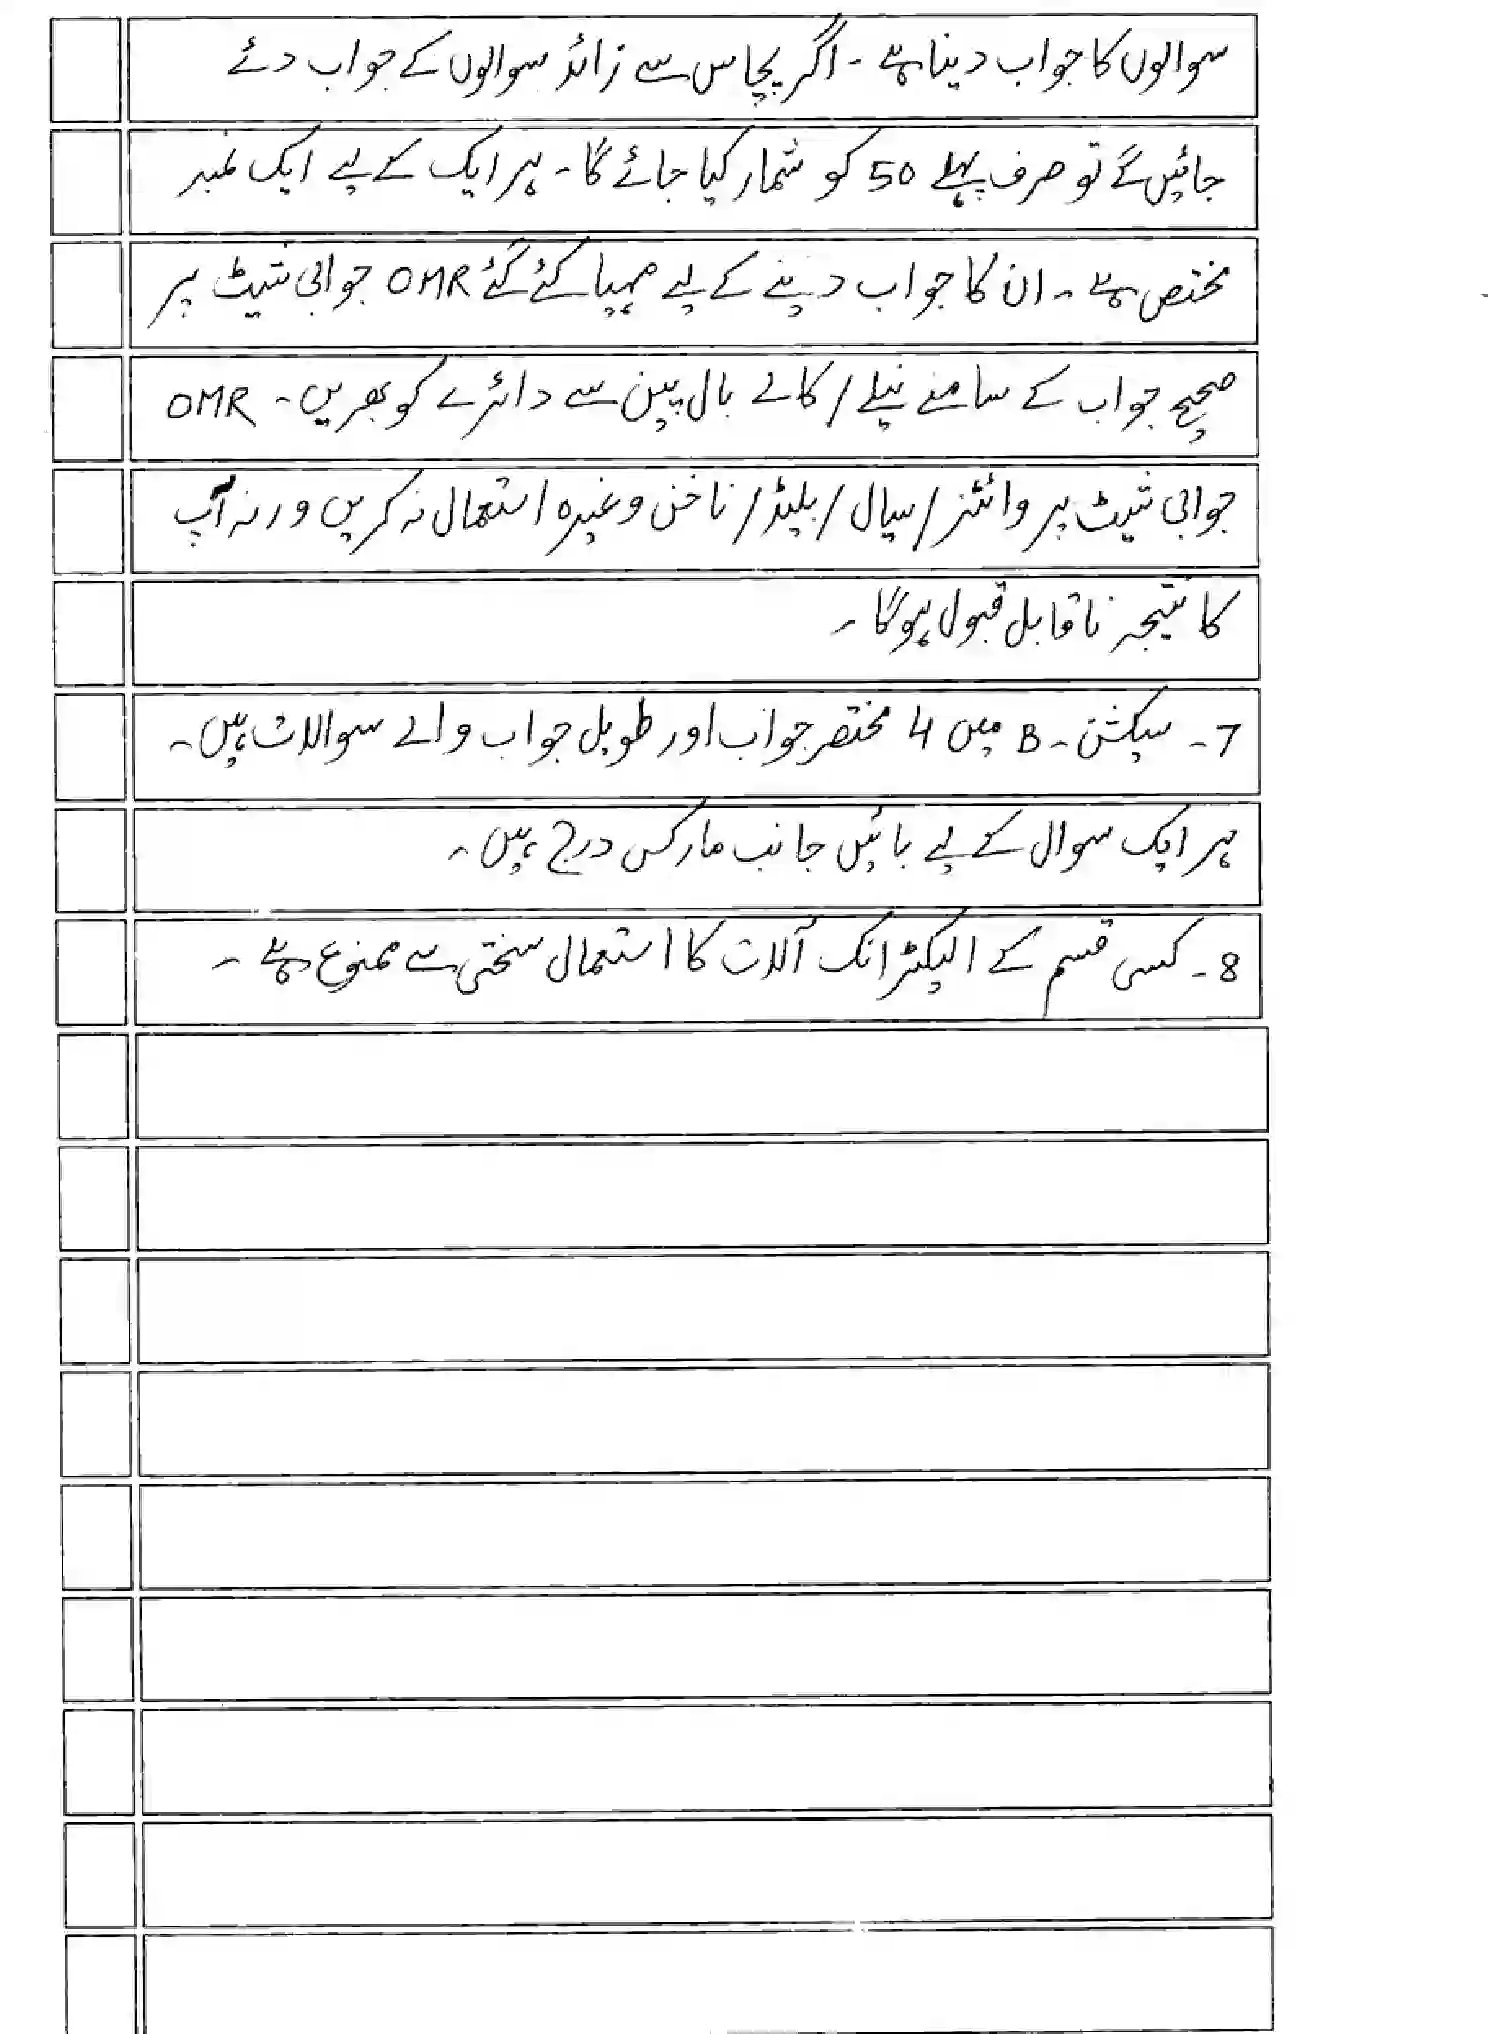 سوالوں کا جواب دینا ہے ۔ اگر پچاس سے زائد سوالوں کے جواب دئے
جائیں گے تو صرف پہلے 50 کو شمار کیا جائے گا ۔ ہر ایک کے لیے ایک نمبر
مختص ہے ۔ ان کا جواب دینے کے لیے مہیا کئے گئے OMR جوابی شیٹ پر
صحیح جواب کے سامنے نیلے / کالے بال پین سے دائرے کو بھریں ۔ OMR
جوابی شیٹ پر وائٹنر / سیال / بلیڈ / ناخن وغیرہ استعمال نہ کریں ورنہ آپ
کا نتیجہ ناقابل قبول ہوگا ۔
7۔ سیکشن ۔ B میں 4 مختصر جواب اور طویل جواب والے سوالات ہیں ۔
ہر ایک سوال کے لیے بائیں جانب مارکس درج ہیں ۔
8۔ کسی قسم کے الیکٹرانک آلات کا استعمال سختی سے ممنوع ہے ۔